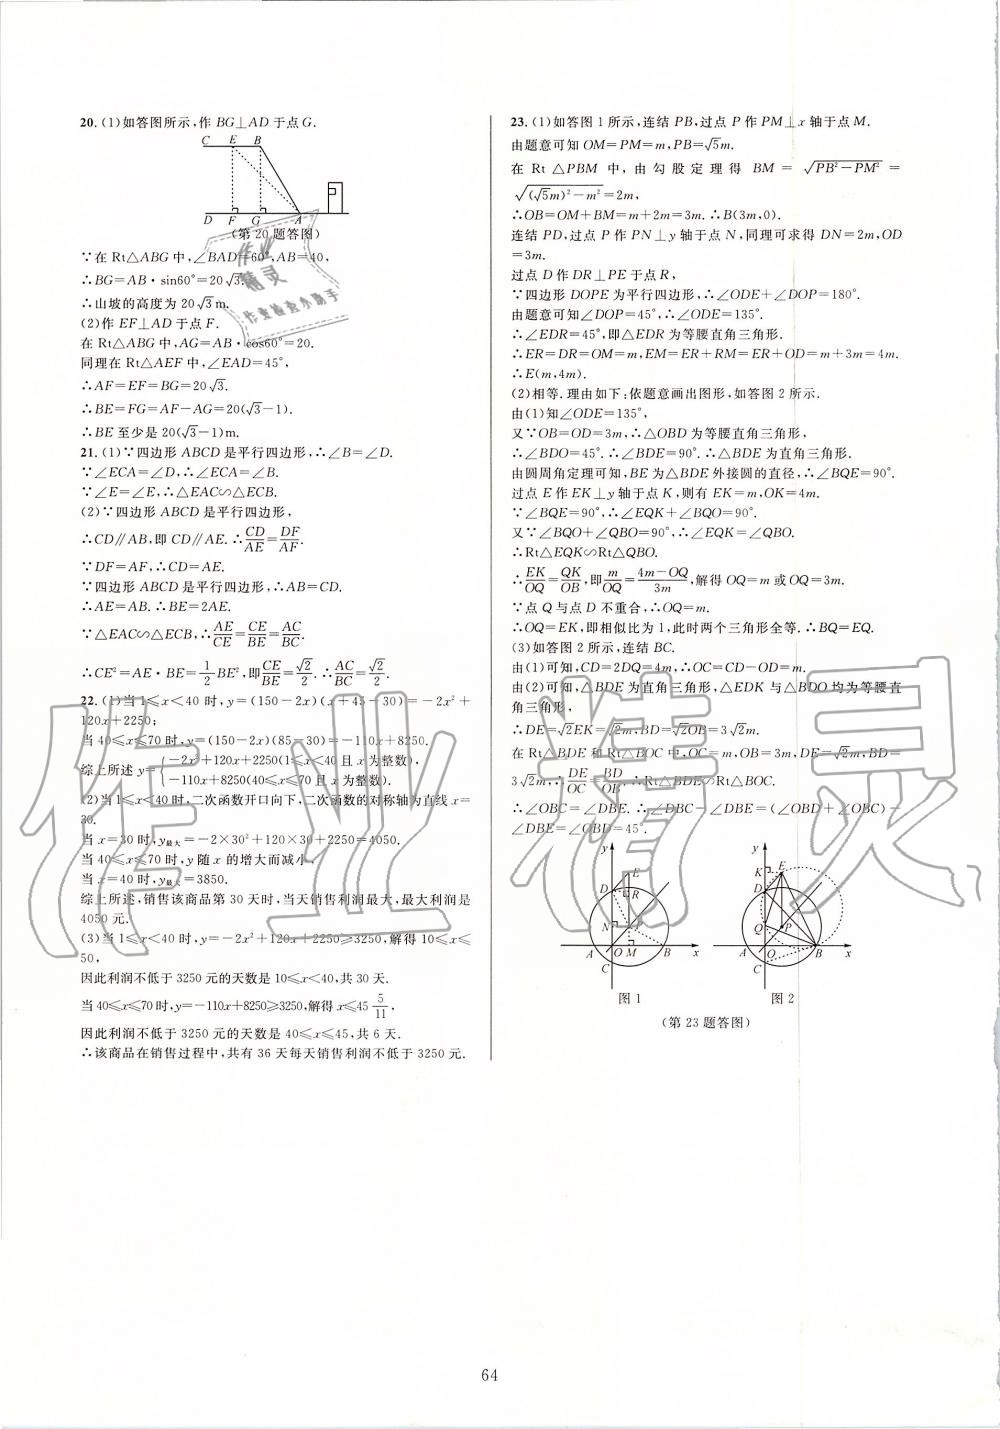 20. (1)如答图所示,作 BG⊥AD 于点 G.
C E B
D F G A
(第 20 题答图)
∵在 Rt△ABG 中,∠BAD=60°,AB=40,
∴BG=AB·sin60°=20√3.
∴山坡的高度为 20√3 m.
(2)作 EF⊥AD 于点 F.
在 Rt△ABG 中,AG=AB·cos60°=20.
同理在 Rt△AEF 中,∠EAD=45°,
∴AF=EF=BG=20√3.
∴BE=FG=AF-AG=20(√3-1).
∴BE 至少是 20(√3-1)m.
21. (1)∵四边形 ABCD 是平行四边形,∴∠B=∠D.
∵∠ECA=∠D,∴∠ECA=∠B.
∵∠E=∠E,∴△EAC∽△ECB.
(2)∵四边形 ABCD 是平行四边形,
∴CD∥AB,即 CD∥AE.∴CD/AE=DF/AF.
∵DF=AF,∴CD=AE.
∵四边形 ABCD 是平行四边形,∴AB=CD.
∴AE=AB.∴BE=2AE.
∵△EAC∽△ECB,∴AE/CE=CE/BE=AC/BC.
∴CE²=AE·BE=1/2BE²,即CE/BE=√2/2.∴AC/BC=√2/2.
22. (1)当 1≤x<40 时,y=(150-2x)(x+45-30)=-2x²+
120x+2250;
当 40≤x≤70 时,y=(150-2x)(85-30)=-110x+8250.
综上所述 y={-2x²+120x+2250(1≤x<40 且 x 为整数),
-110x+8250(40≤x≤70 且 x 为整数).
(2)当 1≤x<40 时,二次函数开口向下,二次函数的对称轴为直线 x=
30.
当 x=30 时,y最大=-2×30²+120×30+2250=4050.
当 40≤x≤70 时,y 随 x 的增大而减小,
当 x=40 时,y最大=3850.
综上所述,销售该商品第 30 天时,当天销售利润最大,最大利润是
4050 元.
(3)当 1≤x<40 时,y=-2x²+120x+2250≥3250,解得 10≤x≤
50,
因此利润不低于 3250 元的天数是 10≤x<40,共 30 天.
当 40≤x≤70 时,y=-110x+8250≥3250,解得 x≤45 5/11,
因此利润不低于 3250 元的天数是 40≤x≤45,共 6 天.
∴该商品在销售过程中,共有 36 天每天销售利润不低于 3250 元.
23. (1)如答图 1 所示,连结 PB,过点 P 作 PM⊥x 轴于点 M.
由题意可知 OM=PM=m,PB=√5m.
在 Rt△PBM 中,由勾股定理得 BM=√(PB²-PM²)=
√((√5m)²-m²)=2m,
∴OB=OM+BM=m+2m=3m.∴B(3m,0).
连结 PD,过点 P 作 PN⊥y 轴于点 N,同理可求得 DN=2m,OD
=3m.
过点 D 作 DR⊥PE 于点 R,
∵四边形 DOPE 为平行四边形,∴∠ODE+∠DOP=180°.
由题意可知∠DOP=45°,∴∠ODE=135°.
∴∠EDR=45°,即△EDR 为等腰直角三角形.
∴ER=DR=OM=m,EM=ER+RM=ER+OD=m+3m=4m.
∴E(m,4m).
(2)相等.理由如下:依题意画出图形,如答图 2 所示.
由(1)知∠ODE=135°,
又∵OB=OD=3m,∴△OBD 为等腰直角三角形,
∴∠BDO=45°.∴∠BDE=90°.∴△BDE 为直角三角形.
由圆周角定理可知,BE 为△BDE 外接圆的直径,∴∠BQE=90°.
过点 E 作 EK⊥y 轴于点 K,则有 EK=m,OK=4m.
∵∠BQE=90°,∴∠EQK+∠BQO=90°.
又∵∠BQO+∠QBO=90°,∴∠EQK=∠QBO.
∴Rt△EQK∽Rt△QBO.
∴EK/OQ=QK/OB,即m/OQ=(4m-OQ)/3m,解得 OQ=m 或 OQ=3m.
∵点 Q 与点 D 不重合,∴OQ=m.
∴OQ=EK,即相似比为 1,此时两个三角形全等.∴BQ=EQ.
(3)如答图 2 所示,连结 BC.
由(1)可知,CD=2DQ=4m,∴OC=m.
由(2)可知,△BDE 为直角三角形,△EDK 与△BDO 均为等腰直
角三角形,
∴DE=√2EK=√2m,BD=√2OB=3√2m.
在 Rt△BDE 和 Rt△BOC 中,OC=m,OB=3m,DE=√2m,BD=
3√2m,∴DE/OC=BD/OB.∴Rt△BDE∽Rt△BOC.
∴∠OBC=∠DBE.∴∠DBC-∠DBE=(∠OBD+∠OBC)-
∠DBE=∠OBD=45°.
y E D R N P A O M B x C
图 1
y K E D Q P A O B x C
图 2
(第 23 题答图)
64
作业精灵
作业精灵
作业检查小助手